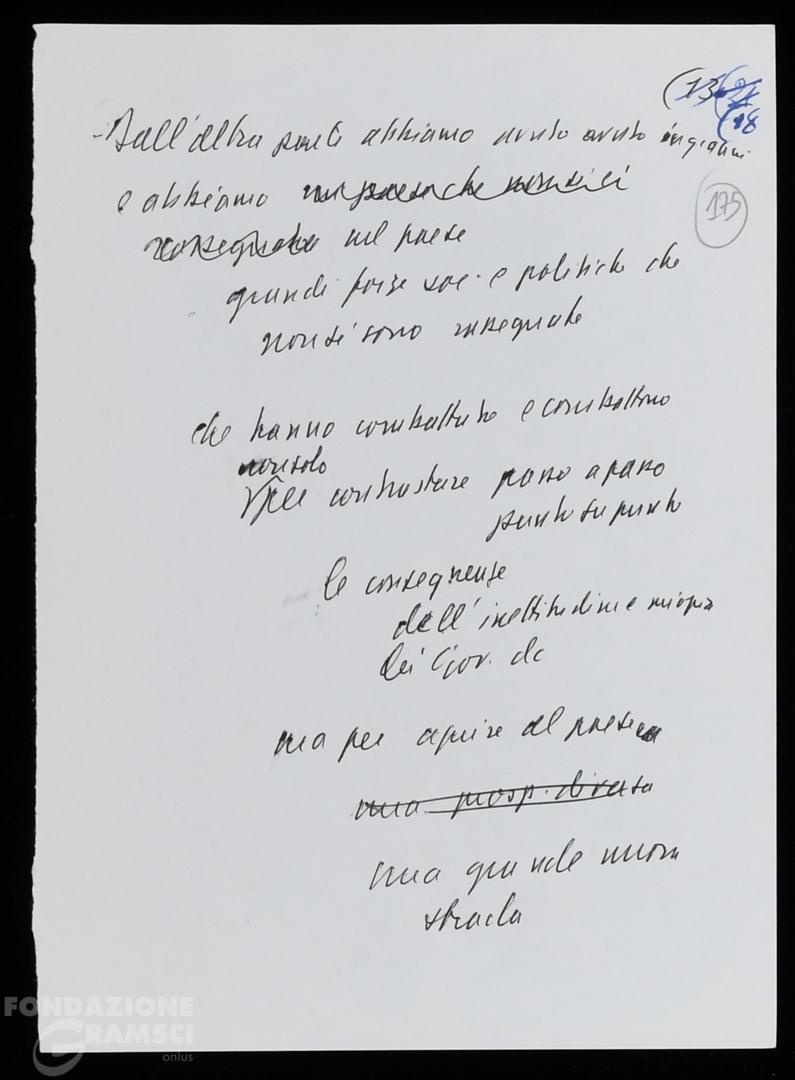 (13
(18
- Dall'altra parte abbiamo avuto avuto in q. anni
e abbiamo un paese che non si è
rassegnato nel paese
175
grandi forze soc. e politiche che
non si sono rassegnate
che hanno combattuto e combattono
non solo
per contrastare passo a passo
punto su punto
le conseguenze
dell'inettitudine e miopia
dei Gov. dc
ma per aprire al paese
una prosp. diversa
una grande nuova
strada
FONDAZIONE
GRAMSCI
onlus